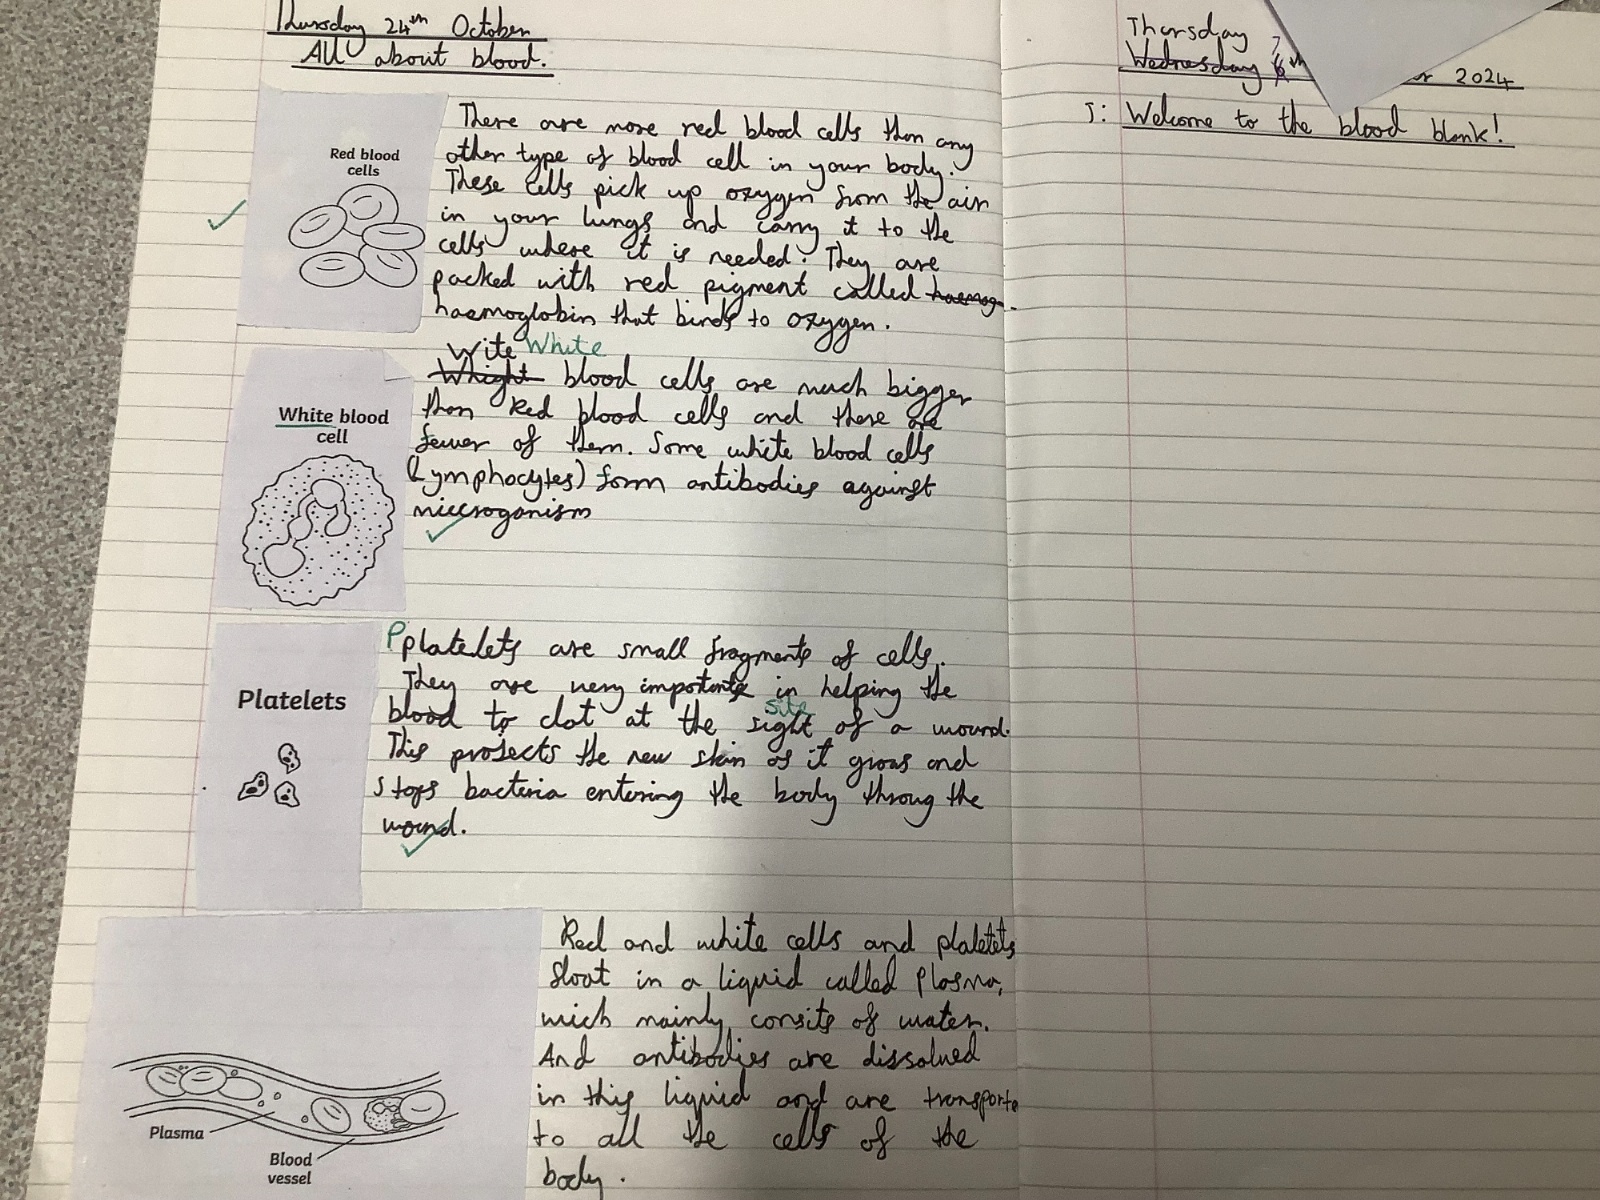 Thursday 24th October
All about blood.
Red blood
cells
There are more red blood cells than any
other type of blood cell in your body.
These cells pick up oxygen from the air
in your lungs and carry it to the
cells where it is needed. They are
packed with red pigment called haemog
haemoglobin that binds to oxygen.
Wite White
Whight blood cells are much bigger
than Red blood cells and there are
fewer of them. Some white blood cells
(Lymphocytes) form antibodies against
White blood
cell
P platelets are small fragments of cells.
They are very important in helping the
site
blood to clot at the sight of a wound.
This protects the new skin as it grows and
stops bacteria entering the body throug the
wound.
Platelets
Red and white cells and platelets
float in a liquid called Plasma,
wich mainly consits of water.
And antibodies are dissolved
in this liquid and are transporte
to all the cells of the
body.
Plasma
Blood
vessel
Thursday 7
Wednesday 6th 2024
Welcome to the blood blank!